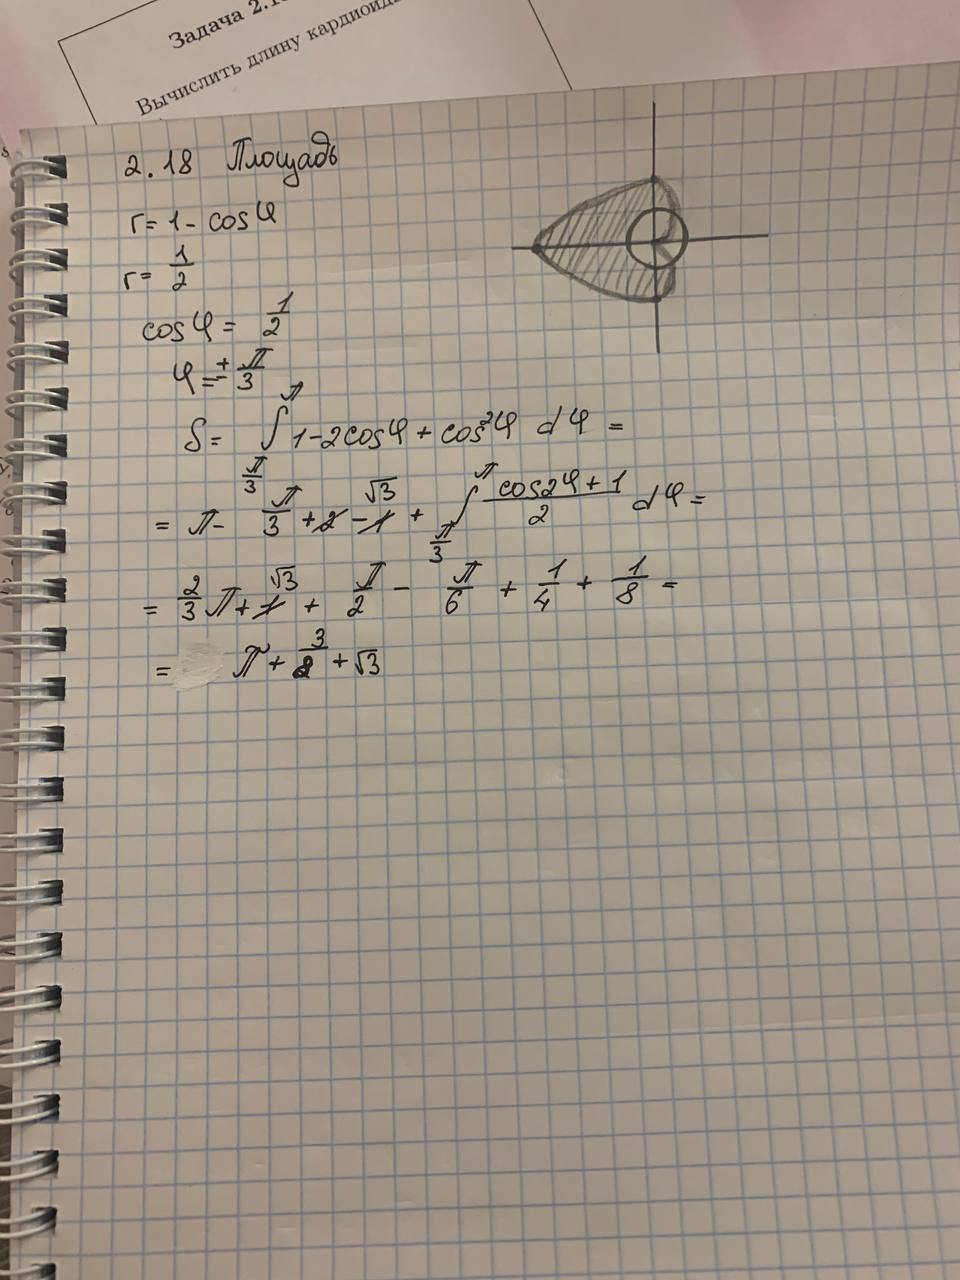 Задача 2.1
Вычислить длину кардиоид
2.18 Площадь
r = 1 - cosφ
r = 1/2
cosφ = 1/2
φ = ± π/3
S = ∫_{π/3}^{π} 1 - 2cosφ + cos²φ dφ =
= π - π/3 + 2 - 1 √3 + ∫_{π/3}^{π} (cos2φ + 1)/2 dφ =
= 2/3 π + 1 √3 + π/2 - π/6 + 1/4 + 1/8 =
= π + 3/8 + √3